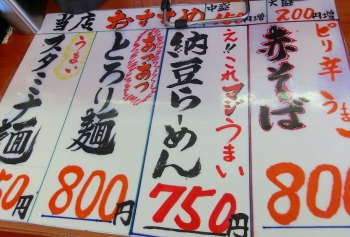 当店 おすすめ 中盛 円増 大盛 200円増
ピリ辛 うまい
赤そば
800
え!!これマジうまい
納豆らーめん
750円
あつあつ
とろり麺
800円
うまい
スタミナ麺
50円